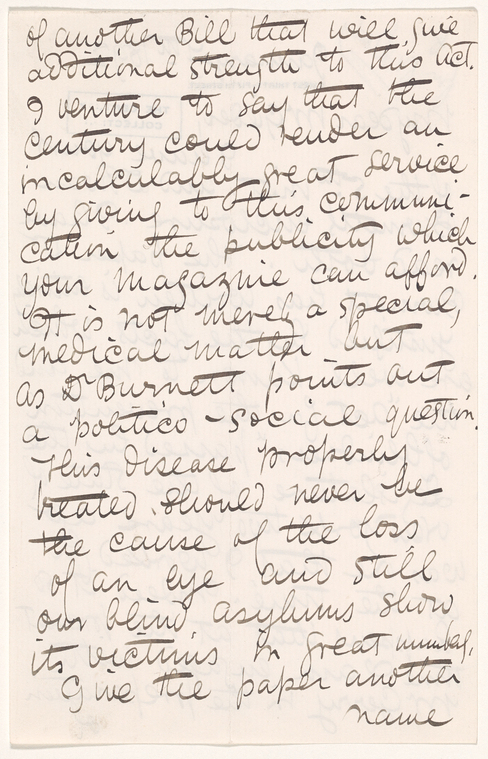 of another Bill that will give
additional strength to this Act.
I venture to say that the
Century could render an
incalculably great service
by giving to this communi-
cation the publicity which
your magazine can afford.
It is not merely a special,
medical matter but
as Dr Burnett points out
a politico-social question.
This disease properly
treated should never be
the cause of the loss
of an eye and still
our blind asylums show
its victims in great number.
Give the paper another
name